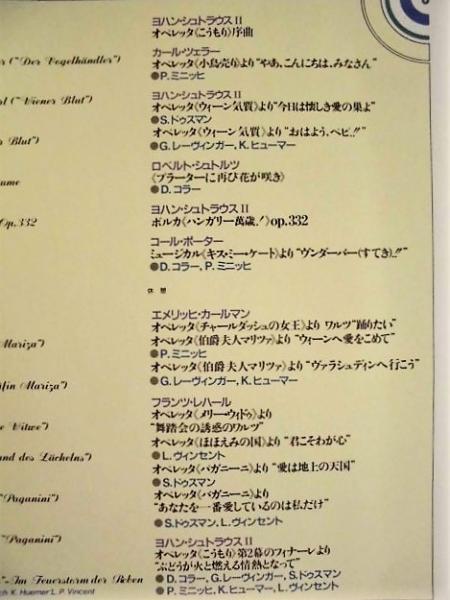 ヨハン・シュトラウスII
オペレッタ《こうもり》序曲
カール・ツェラー
er ("Der Vogelhändler")
オペレッタ《小鳥売り》より“やあ、こんにちは、みなさん”
●P.ミニッヒ
ヨハン・シュトラウスII
("Wiener Blut")
オペレッタ《ウィーン気質》より“今日は懐しき愛の巣よ”
●S.ドゥスマン
Blut")
オペレッタ《ウィーン気質》より“おはよう、ペピ.!!”
●G.レーヴィンガー、K.ヒューマー
ロベルト・シュトルツ
《プラーターに再び花が咲き》
●D.コラー
ヨハン・シュトラウスII
Op.332
ポルカ《ハンガリー萬歳.!》op.332
コール・ポーター
ミュージカル《キス・ミー・ケート》より“ヴンダーバー(すてき).!!”
●D.コラー、P.ミニッヒ
休憩
エメリッヒ・カールマン
オペレッタ《チャールダッシュの女王》より ワルツ“踊りたい”
Mariza")
オペレッタ《伯爵夫人マリツァ》より“ウィーンへ愛をこめて”
●P.ミニッヒ
オペレッタ《伯爵夫人マリツァ》より“ヴァラシュディンへ行こう”
fin Mariza")
●G.レーヴィンガー、K.ヒューマー
フランツ・レハール
オペレッタ《メリー・ウィドゥ》より
e Witwe")
“舞踏会の誘惑のワルツ”
オペレッタ《ほほえみの国》より“君こそわが心”
and des Lächelns")
●L.ヴィンセント
オペレッタ《パガニーニ》より“愛は地上の天国”
●S.ドゥスマン
"Paganini")
オペレッタ《パガニーニ》より
“あなたを一番愛しているのは私だけ”
●S.ドゥスマン、L.ヴィンセント
"Paganini")
ヨハン・シュトラウスII
オペレッタ《こうもり》第2幕のフィナーレより
“ぶどうが火と燃える情熱となって”
"-Im Feuerstrom der Reben
●D.コラー、G.レーヴィンガー、S.ドゥスマン
K. Huemer L. P. Vincent
●P.ミニッヒ、K.ヒューマー、L.ヴィンセント